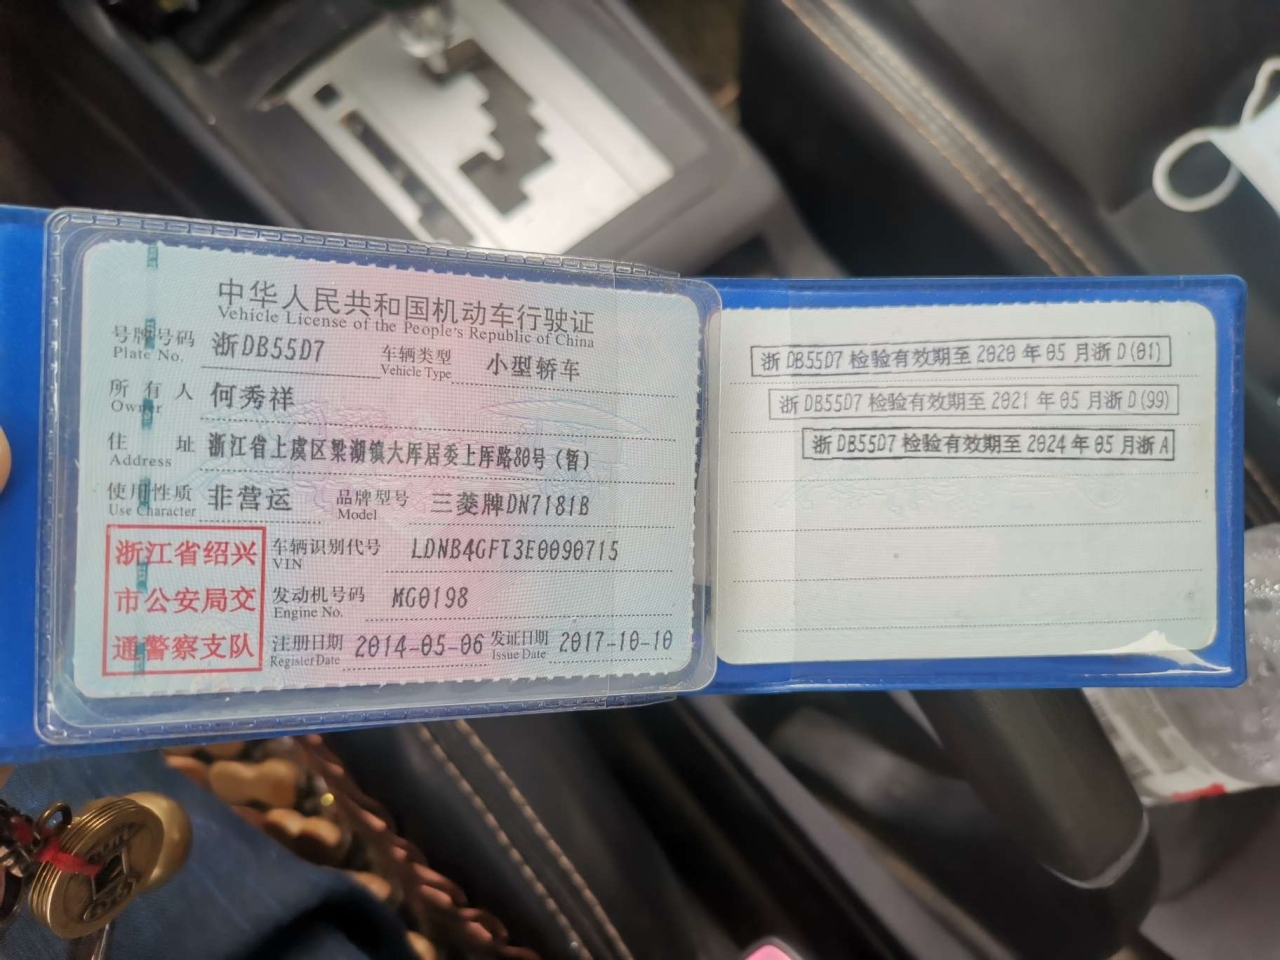 中华人民共和国机动车行驶证
Vehicle License of the People's Republic of China
号牌号码 浙DB55D7 车辆类型 小型轿车
Plate No. Vehicle Type
所有人 何秀祥
Owner
住址 浙江省上虞区梁湖镇大厍居委上厍路80号(暂)
Address
使用性质 非营运 品牌型号 三菱牌DN7181B
Use Character Model
浙江省绍兴
市公安局交
通警察支队
车辆识别代号 LDNB4GFT3E0090715
VIN
发动机号码 MG0198
Engine No.
注册日期 2014-05-06 发证日期 2017-10-10
Register Date Issue Date
浙DB55D7检验有效期至2020年05月浙D(01)
浙DB55D7检验有效期至2021年05月浙D(99)
浙DB55D7检验有效期至2024年05月浙A